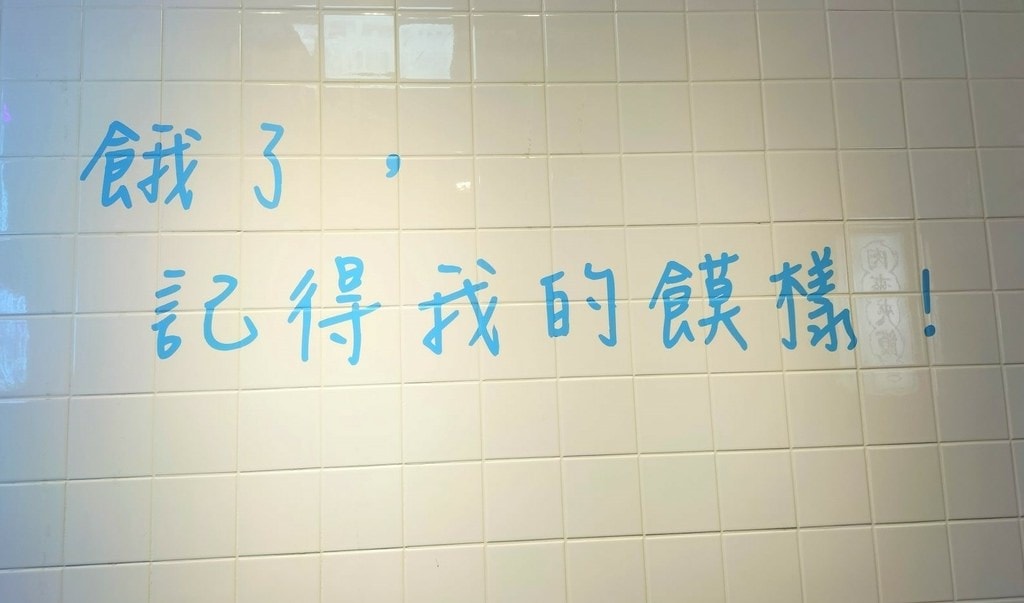 餓了，
記得我的饃樣！